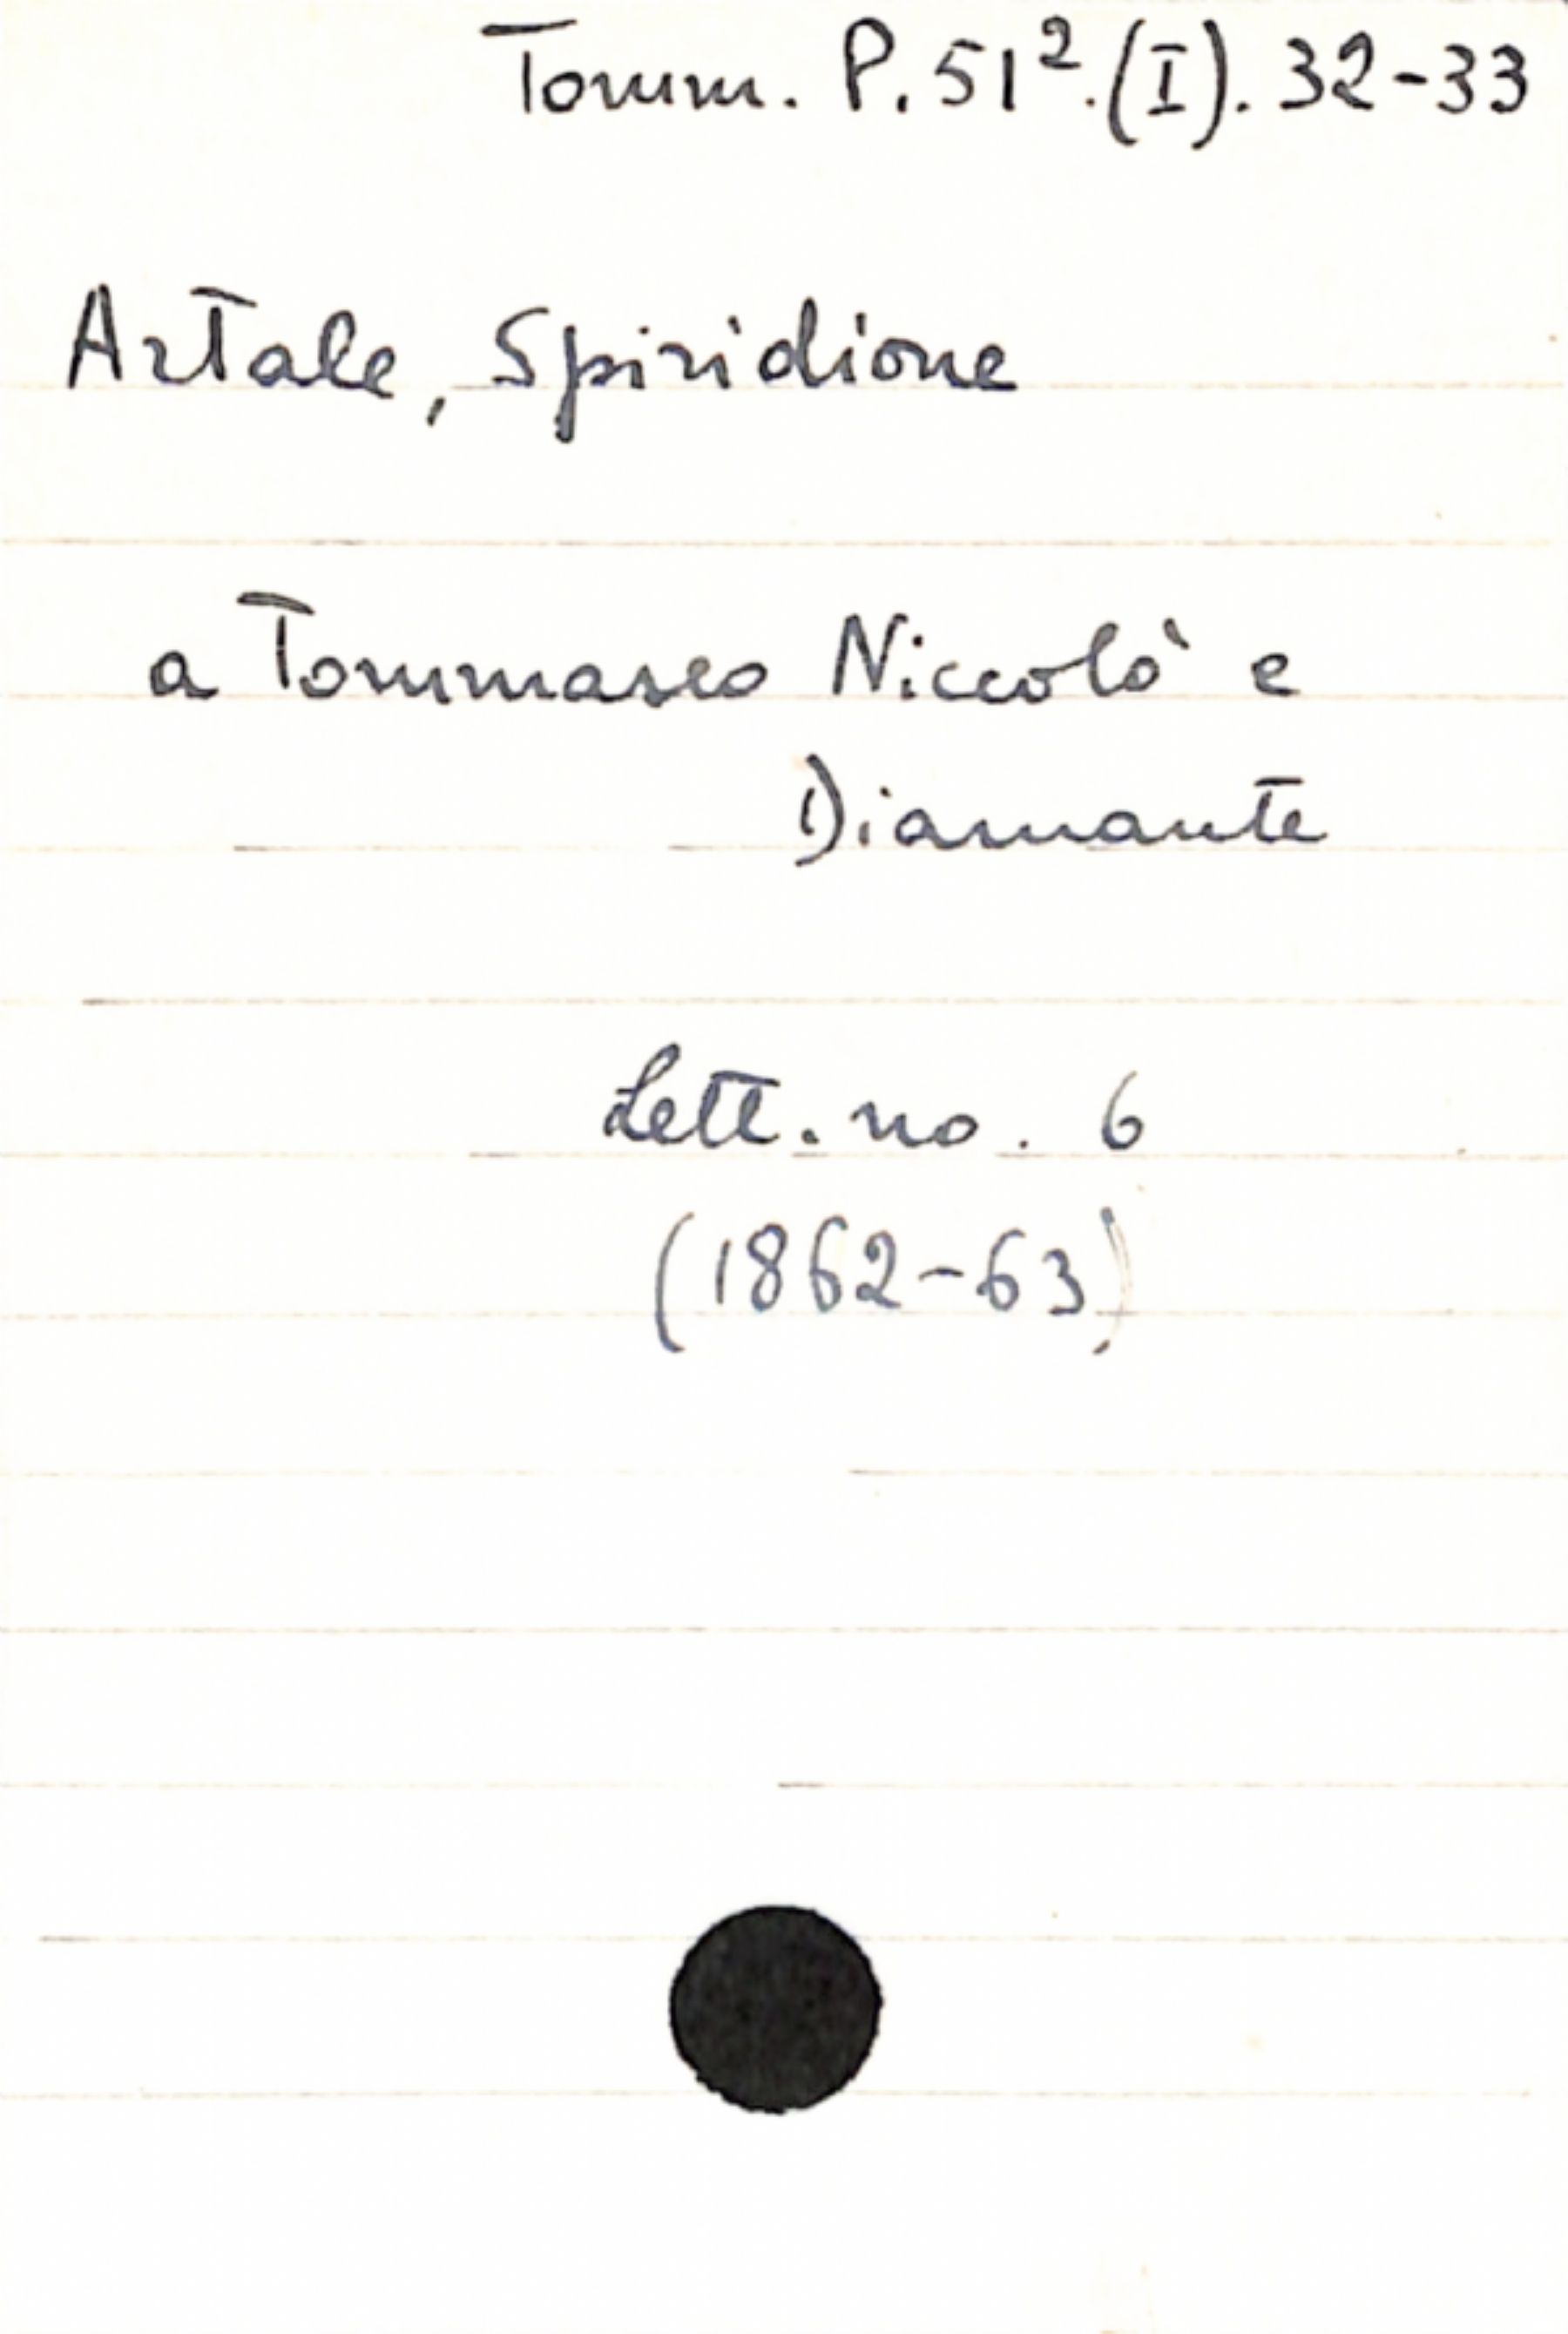 Tomm. P. 51². (I). 32-33
Artale, Spiridione
a Tommaseo Niccolò e
Diamante
Lett. no. 6
(1862-63)